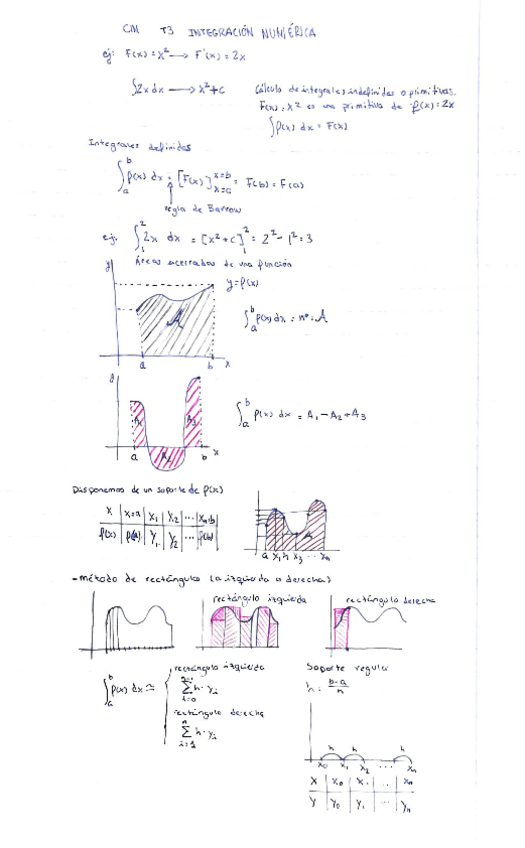 CM T3 INTEGRACIÓN NUMÉRICA
ej: F(x) = x² → F'(x) = 2x
∫2x dx → x² + c
Cálculo de integrales indefinidas o primitivas.
F(x) = x² es una primitiva de f(x) = 2x
∫f(x) dx = F(x)
Integrales definidas
∫ₐᵇ f(x) dx = [F(x)]ₓ₌ₐˣ⁼ᵇ = F(b) - F(a)
regla de Barrow
ej. ∫₁² 2x dx = [x² + c]₁² = 2² - 1² = 3
Áreas encerradas de una función
y
y = f(x)
A
∫ₐᵇ f(x) dx = nº = A
a b x
y
A₁ A₂ A₃
∫ₐᵇ f(x) dx = A₁ - A₂ + A₃
a b x
Disponemos de un soporte de f(x)
x | x₀=a | x₁ | x₂ | ... | xₙ=b
f(x) | f(a) | y₁ | y₂ | ... | f(b)
- método de rectángulo (a izquierda o derecha)
rectángulo izquierda
rectángulo derecha
∫ₐᵇ f(x) dx ≃
rectángulo izquierda
∑ᵢ₌₀ⁿ⁻¹ h · yᵢ
rectángulo derecha
∑ᵢ₌₁ⁿ h · yᵢ
Soporte regular
h = (b-a)/n
h h h
x₀ x₁ x₂ ... xₙ
x | x₀ | x₁ | ... | xₙ
y | y₀ | y₁ | ... | yₙ